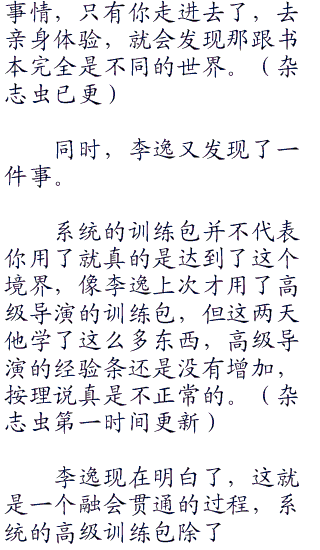 事情，只有你走进去了，去
亲身体验，就会发现那跟书
本完全是不同的世界。（杂
志虫已更）
同时，李逸又发现了一
件事。
系统的训练包并不代表
你用了就真的是达到了这个
境界，像李逸上次才用了高
级导演的训练包，但这两天
他学了这么多东西，高级导
演的经验条还是没有增加，
按理说真是不正常的。（杂
志虫第一时间更新）
李逸现在明白了，这就
是一个融会贯通的过程，系
统的高级训练包除了